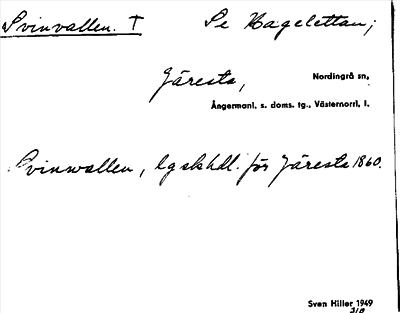 Svinvallen. † Se Hagelettan;
Järesta, Nordingrå sn,
Ångermanl. s. doms. tg., Västernorrl. l.
Svinwallen, lgaskhdl. för Järesta 1860.
Sven Hiller 1949
310